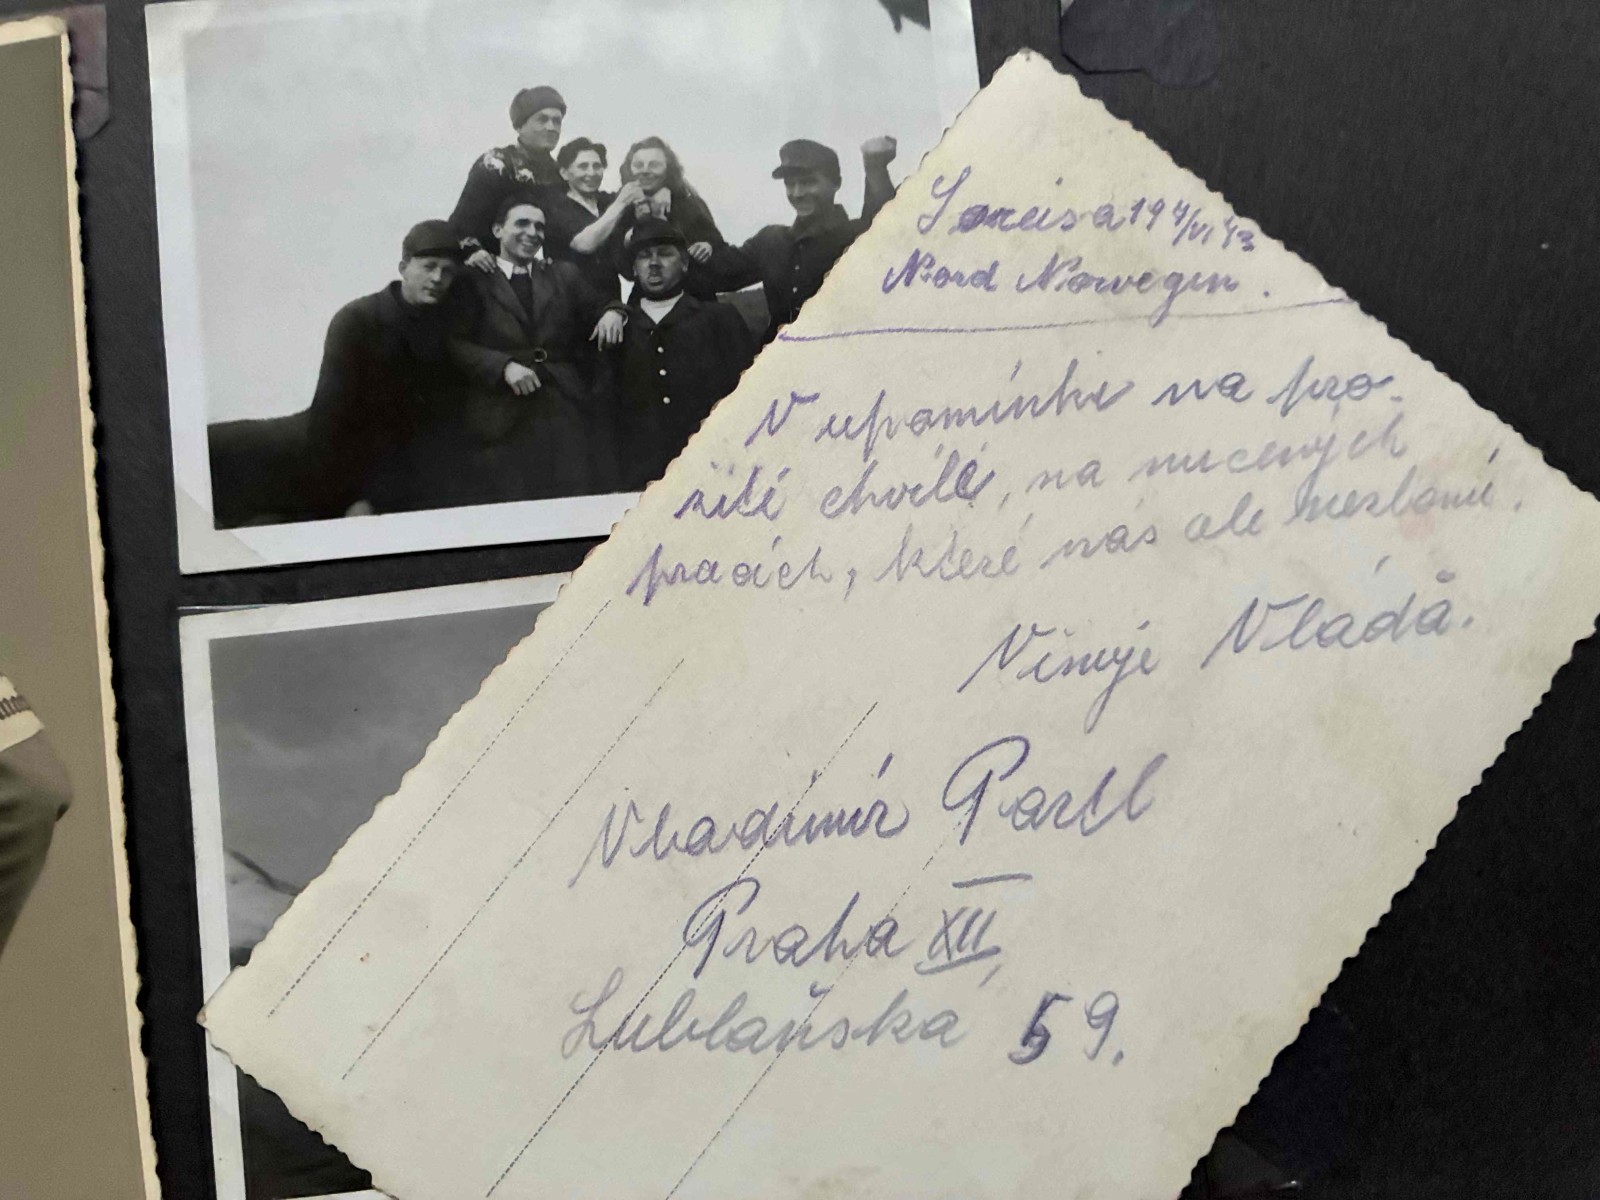 Soreisa 19 4/VI. 43
Nord Norwegen.
V upomínke na pro-
žité chvíle, na nucených
pracích, které nás ale nezlomí.
Věnuje Vláďa.
Vladimír Partl
Praha XII,
Lublaňská 59.